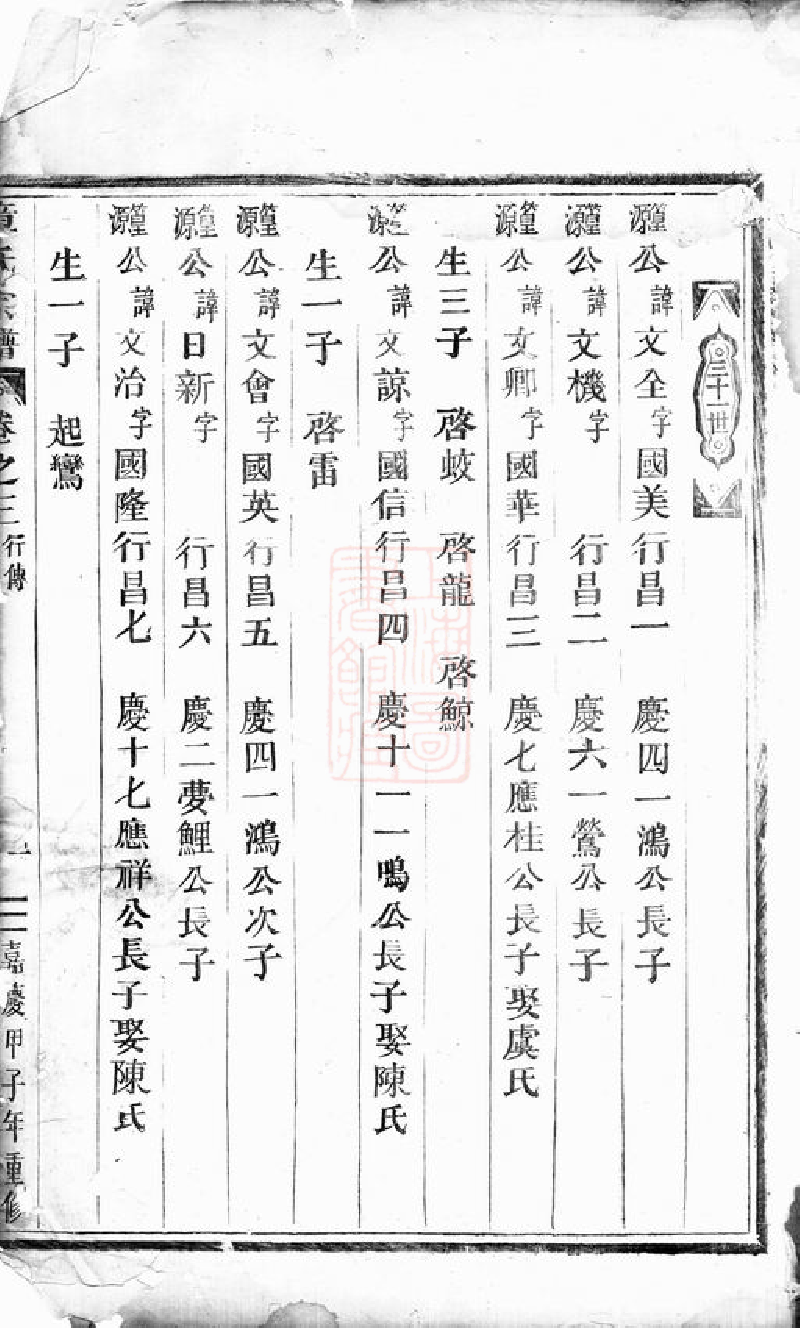 三十一世
篁源公諱文全字國美行昌一 慶四一鴻公長子
篁源公諱文機字 行昌二 慶六一鶯公長子
篁源公諱文卿字國華行昌三 慶七應桂公長子娶虞氏
生三子 啓蛟 啓龍 啓鯨
篁源公諱文諒字國信行昌四 慶十一一鳴公長子娶陳氏
生一子 啓雷
篁源公諱文會字國英行昌五 慶四一鴻公次子
篁源公諱日新字 行昌六 慶二夢鯉公長子
篁源公諱文治字國隆行昌七 慶十七應祥公長子娶陳氏
生一子 起鸞
氏宗譜 卷之三行傳 嘉慶甲子年重修
上海圖書館藏